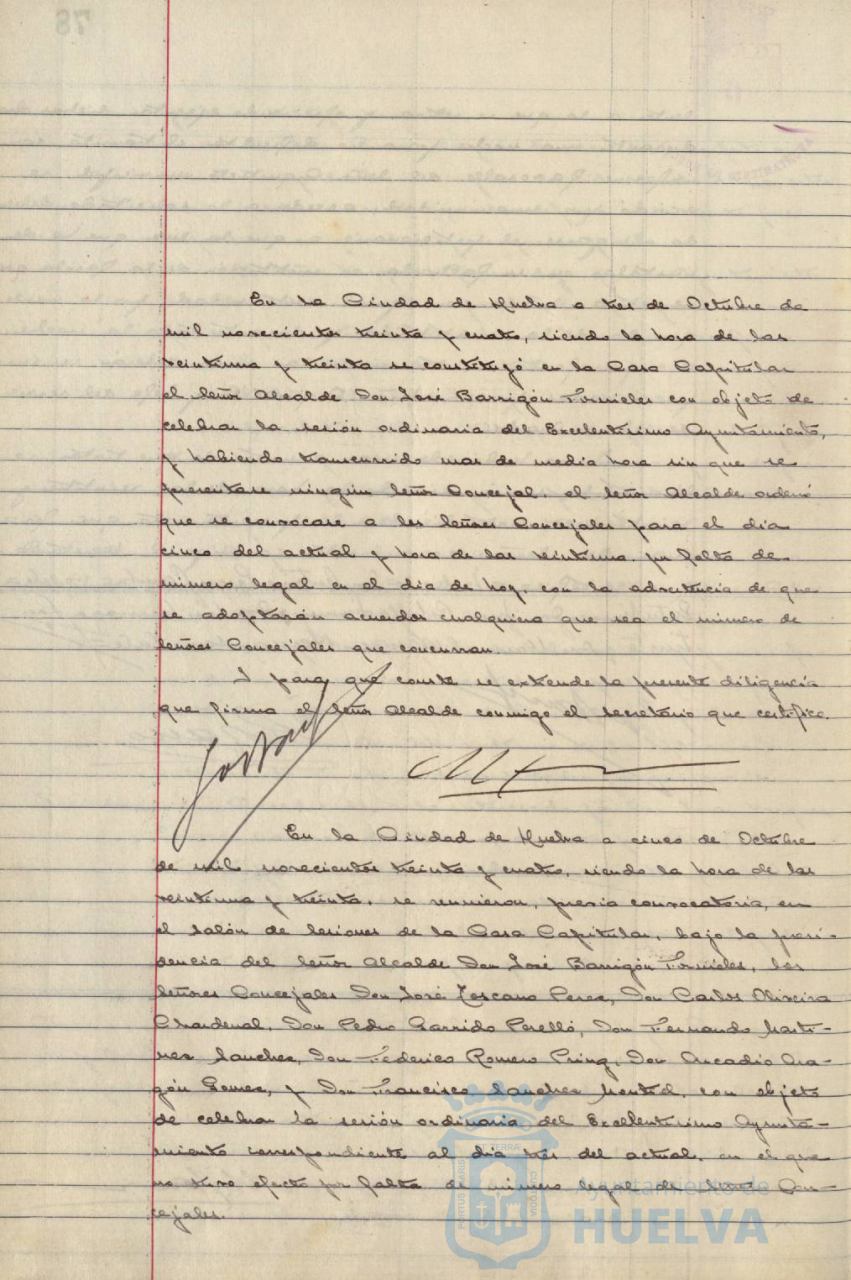 78
En la Ciudad de Huelva a tres de Octubre de
mil novecientos treinta y cuatro, siendo la hora de las
veintiuna y treinta se constituyó en la Casa Capitular
el Señor Alcalde Don José Barrigón Fornieles con objeto de
celebrar la sesión ordinaria del Excelentísimo Ayuntamiento,
y habiendo transcurrido mas de media hora sin que se
presentase ningún Señor Concejal, el Señor Alcalde ordenó
que se convocase a los Señores Concejales para el dia
cinco del actual y hora de las veintiuna, por falta de
número legal en el dia de hoy, con la advertencia de que
se adoptarán acuerdos cualquiera que sea el número de
Señores Concejales que concurran.
Y para que conste se extiende la presente diligencia
que firma el Señor Alcalde conmigo el Secretario que certifico.
En la Ciudad de Huelva a cinco de Octubre
de mil novecientos treinta y cuatro, siendo la hora de las
veintiuna y treinta, se reunieron, previa convocatoria, en
el Salón de Sesiones de la Casa Capitular, bajo la presi-
dencia del Señor Alcalde Don José Barrigón Fornieles, los
Señores Concejales Don José Toscano Perez, Don Carlos Oliveira
Chardenal, Don Pedro Garrido Perelló, Don Fernando Marti-
nez Sanchez, Don Federico Romero Pring, Don Arcadio Ara-
gón Gomez, y Don Francisco Sanchez Montiel, con objeto
de celebrar la sesión ordinaria del Excelentísimo Ayunta-
miento correspondiente al dia tres del actual, en el que
no tuvo efecto por falta de número legal de Con-
cejales.
Ayuntamiento de
HUELVA